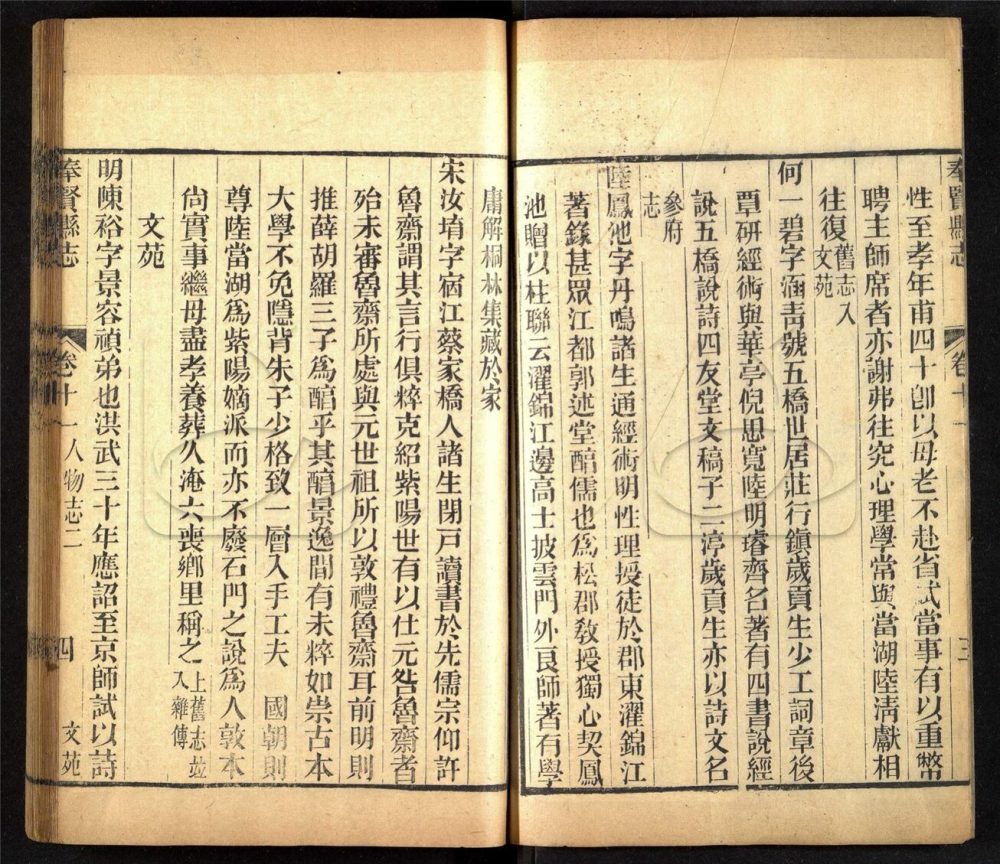 奉賢縣志
卷十一
三
性至孝年甫四十卽以母老不赴省試當事有以重幣
聘主師席者亦謝弗往究心理學常與當湖陸清獻相
往復舊志入文苑
何一碧字涵靑號五橋世居莊行鎭歲貢生少工詞章後
覃硏經術與華亭倪思寬陸明睿齊名著有四書說經
說五橋說詩四友堂文稿子二渟歲貢生亦以詩文名
參府志
陸鳳池字丹鳴諸生通經術明性理授徒於郡東濯錦江
著錄甚眾江都郭述堂醕儒也爲松郡敎授獨心契鳳
池贈以柱聯云濯錦江邊高士披雲門外良師著有學
庸解桐林集藏於家
宋汝堉字宿江蔡家橋人諸生閉戸讀書於先儒宗仰許
魯齋謂其言行俱粹克紹紫陽世有以仕元咎魯齋者
殆未審魯齋所處與元世祖所以敦禮魯齋耳前明則
推薛胡羅三子爲醕乎其醕景逸間有未粹如崇古本
大學不免隱背朱子少格致一層入手工夫　國朝則
尊陸當湖爲紫陽嫡派而亦不廢石門之說爲人敦本
尙實事繼母盡孝養葬久淹六喪鄕里稱之上舊志竝入雜傳
文苑
明陳裕字景容禎弟也洪武三十年應詔至京師試以詩
奉賢縣志
卷十一人物志二
四
文苑